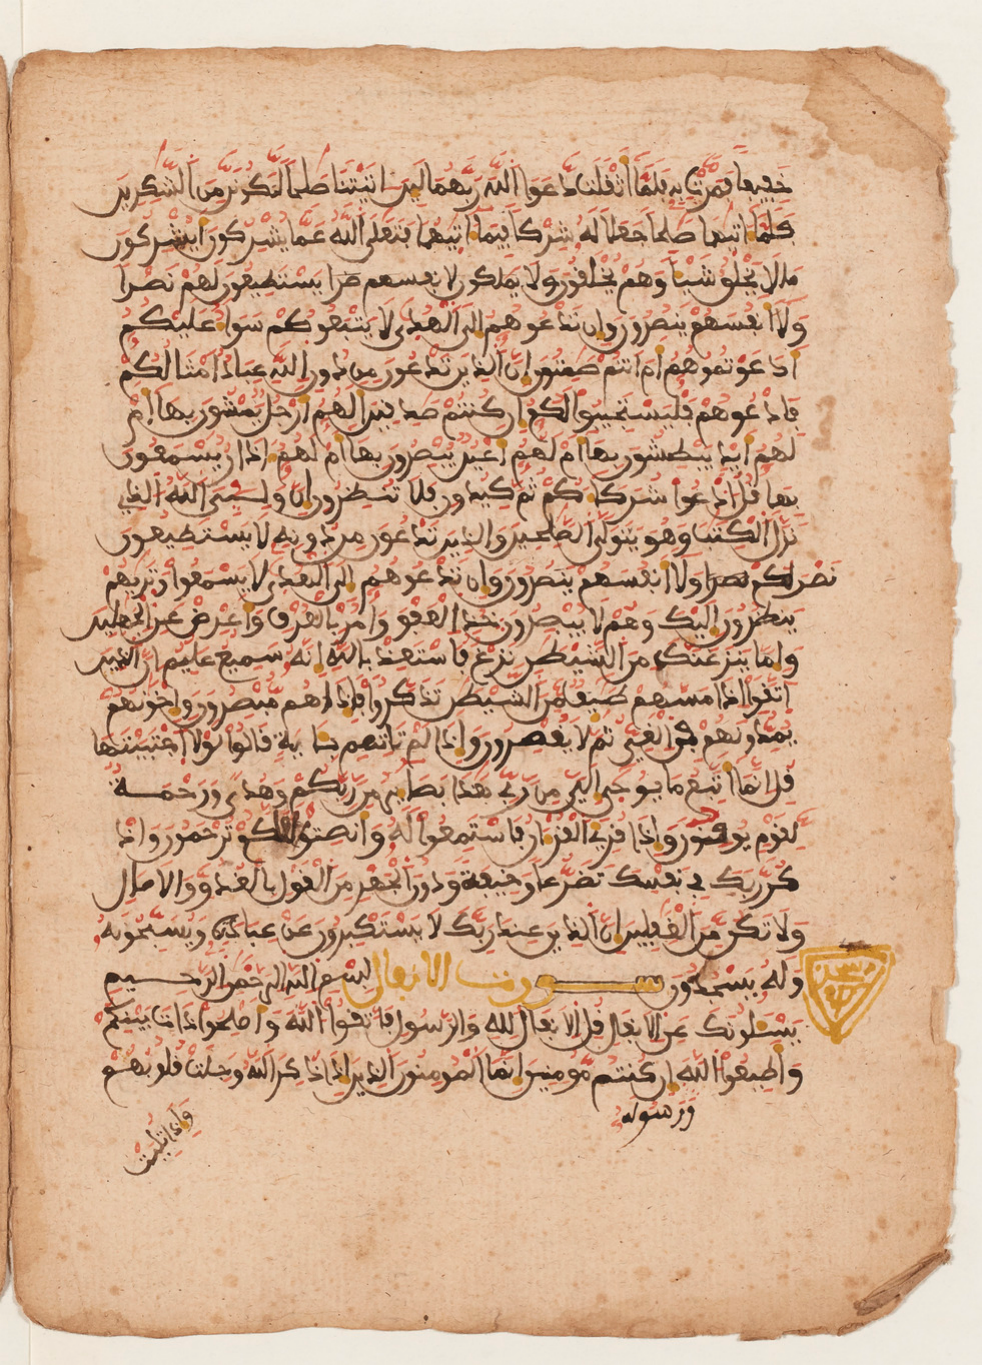 خفيفا فمرت به فلما أثقلت دعوا الله ربهما لين اتيتنا صلحا لنكونن من الشكرين
فلما اتيهما صلحا جعلا له شركا فيما اتيهما فتعلى الله عما يشركون ايشركون
ما لا يخلق شيا وهم يخلقون ولا يملكون لانفسهم ضرا يستطيعون لهم نصرا
ولا أنفسهم ينصرون وان تدعوهم الى الهدى لا يتبعوكم سواء عليكم
ادعوتموهم ام انتم صمتون ان الذين تدعون من دون الله عباد امثالكم
فادعوهم فليستجيبوا لكم ان كنتم صدقين الهم ارجل يمشون بها ام
لهم ايد يبطشون بها ام لهم اعين يبصرون بها ام لهم اذان يسمعون
بها قل ادعوا شركاءكم ثم كيدون فلا تنظرون ان وليي الله الذي
نزل الكتب وهو يتولى الصلحين والذين تدعون من دونه لا يستطيعون
نصركم ولا انفسهم ينصرون وان تدعوهم الى الهدى لا يسمعوا وتريهم
ينظرون اليك وهم لا يبصرون خذ العفو وامر بالعرف واعرض عن الجهلين
واما ينزغنك من الشيطن نزغ فاستعذ بالله انه سميع عليم ان الذين
اتقوا اذا مسهم طيف من الشيطن تذكروا فاذا هم مبصرون واخونهم
يمدونهم في الغي ثم لا يقصرون واذا لم تاتهم باية قالوا لولا اجتبيتها
قل انما اتبع ما يوحى الي من ربي هذا بصاير من ربكم وهدى ورحمة
لقوم يومنون واذا قرئ القرءان فاستمعوا له وانصتوا لعلكم ترحمون واذ
كر ربك في نفسك تضرعا وخيفة ودون الجهر من القول بالغدو والاصال
ولا تكن من الغفلين ان الذين عند ربك لا يستكبرون عن عبادته ويسبحونه
وله يسجدون سورت الانفال بسم الله الرحمن الرحيم
يسئلونك عن الانفال قل الانفال لله والرسول فاتقوا الله واصلحوا ذات بينكم
واطيعوا الله ان كنتم مومنين انما المومنون الذين اذا ذكر الله وجلت قلوبهم
ورسوله
واذا تليت